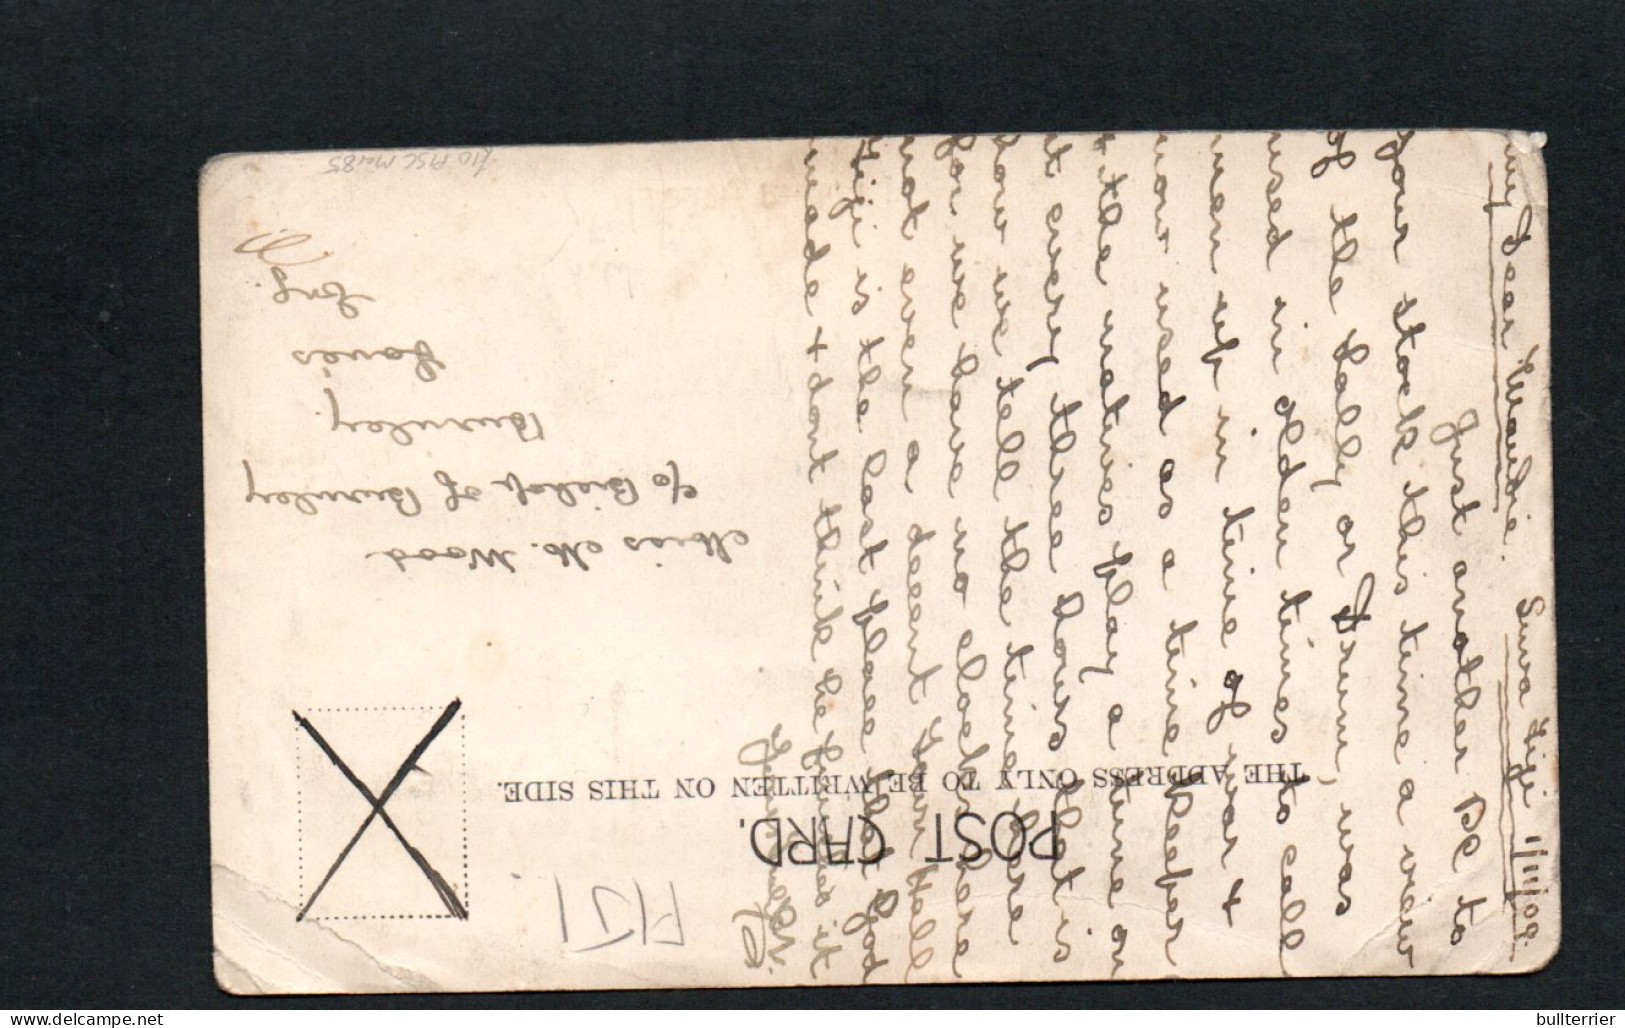 POST CARD.
THE ADDRESS ONLY TO BE WRITTEN ON THIS SIDE.
FIJI
Suva Fiji 1/11/09.
My Dear Maudie.
Just another PC to
your stock this time a view
of the Lally or Drum, was
used in olden times to call
men up in time of war &
now used as a time keeper
& the natives play a tune on
it every three hours that is
how we tell the time here
for we have no clocks here
not even a decent Town Hall
Fiji is the last place that God
made & dont think he finished it
Miss M. Wood
c/o Bishop of Burnley
Burnley
Lancs
Eng.
bullterrier